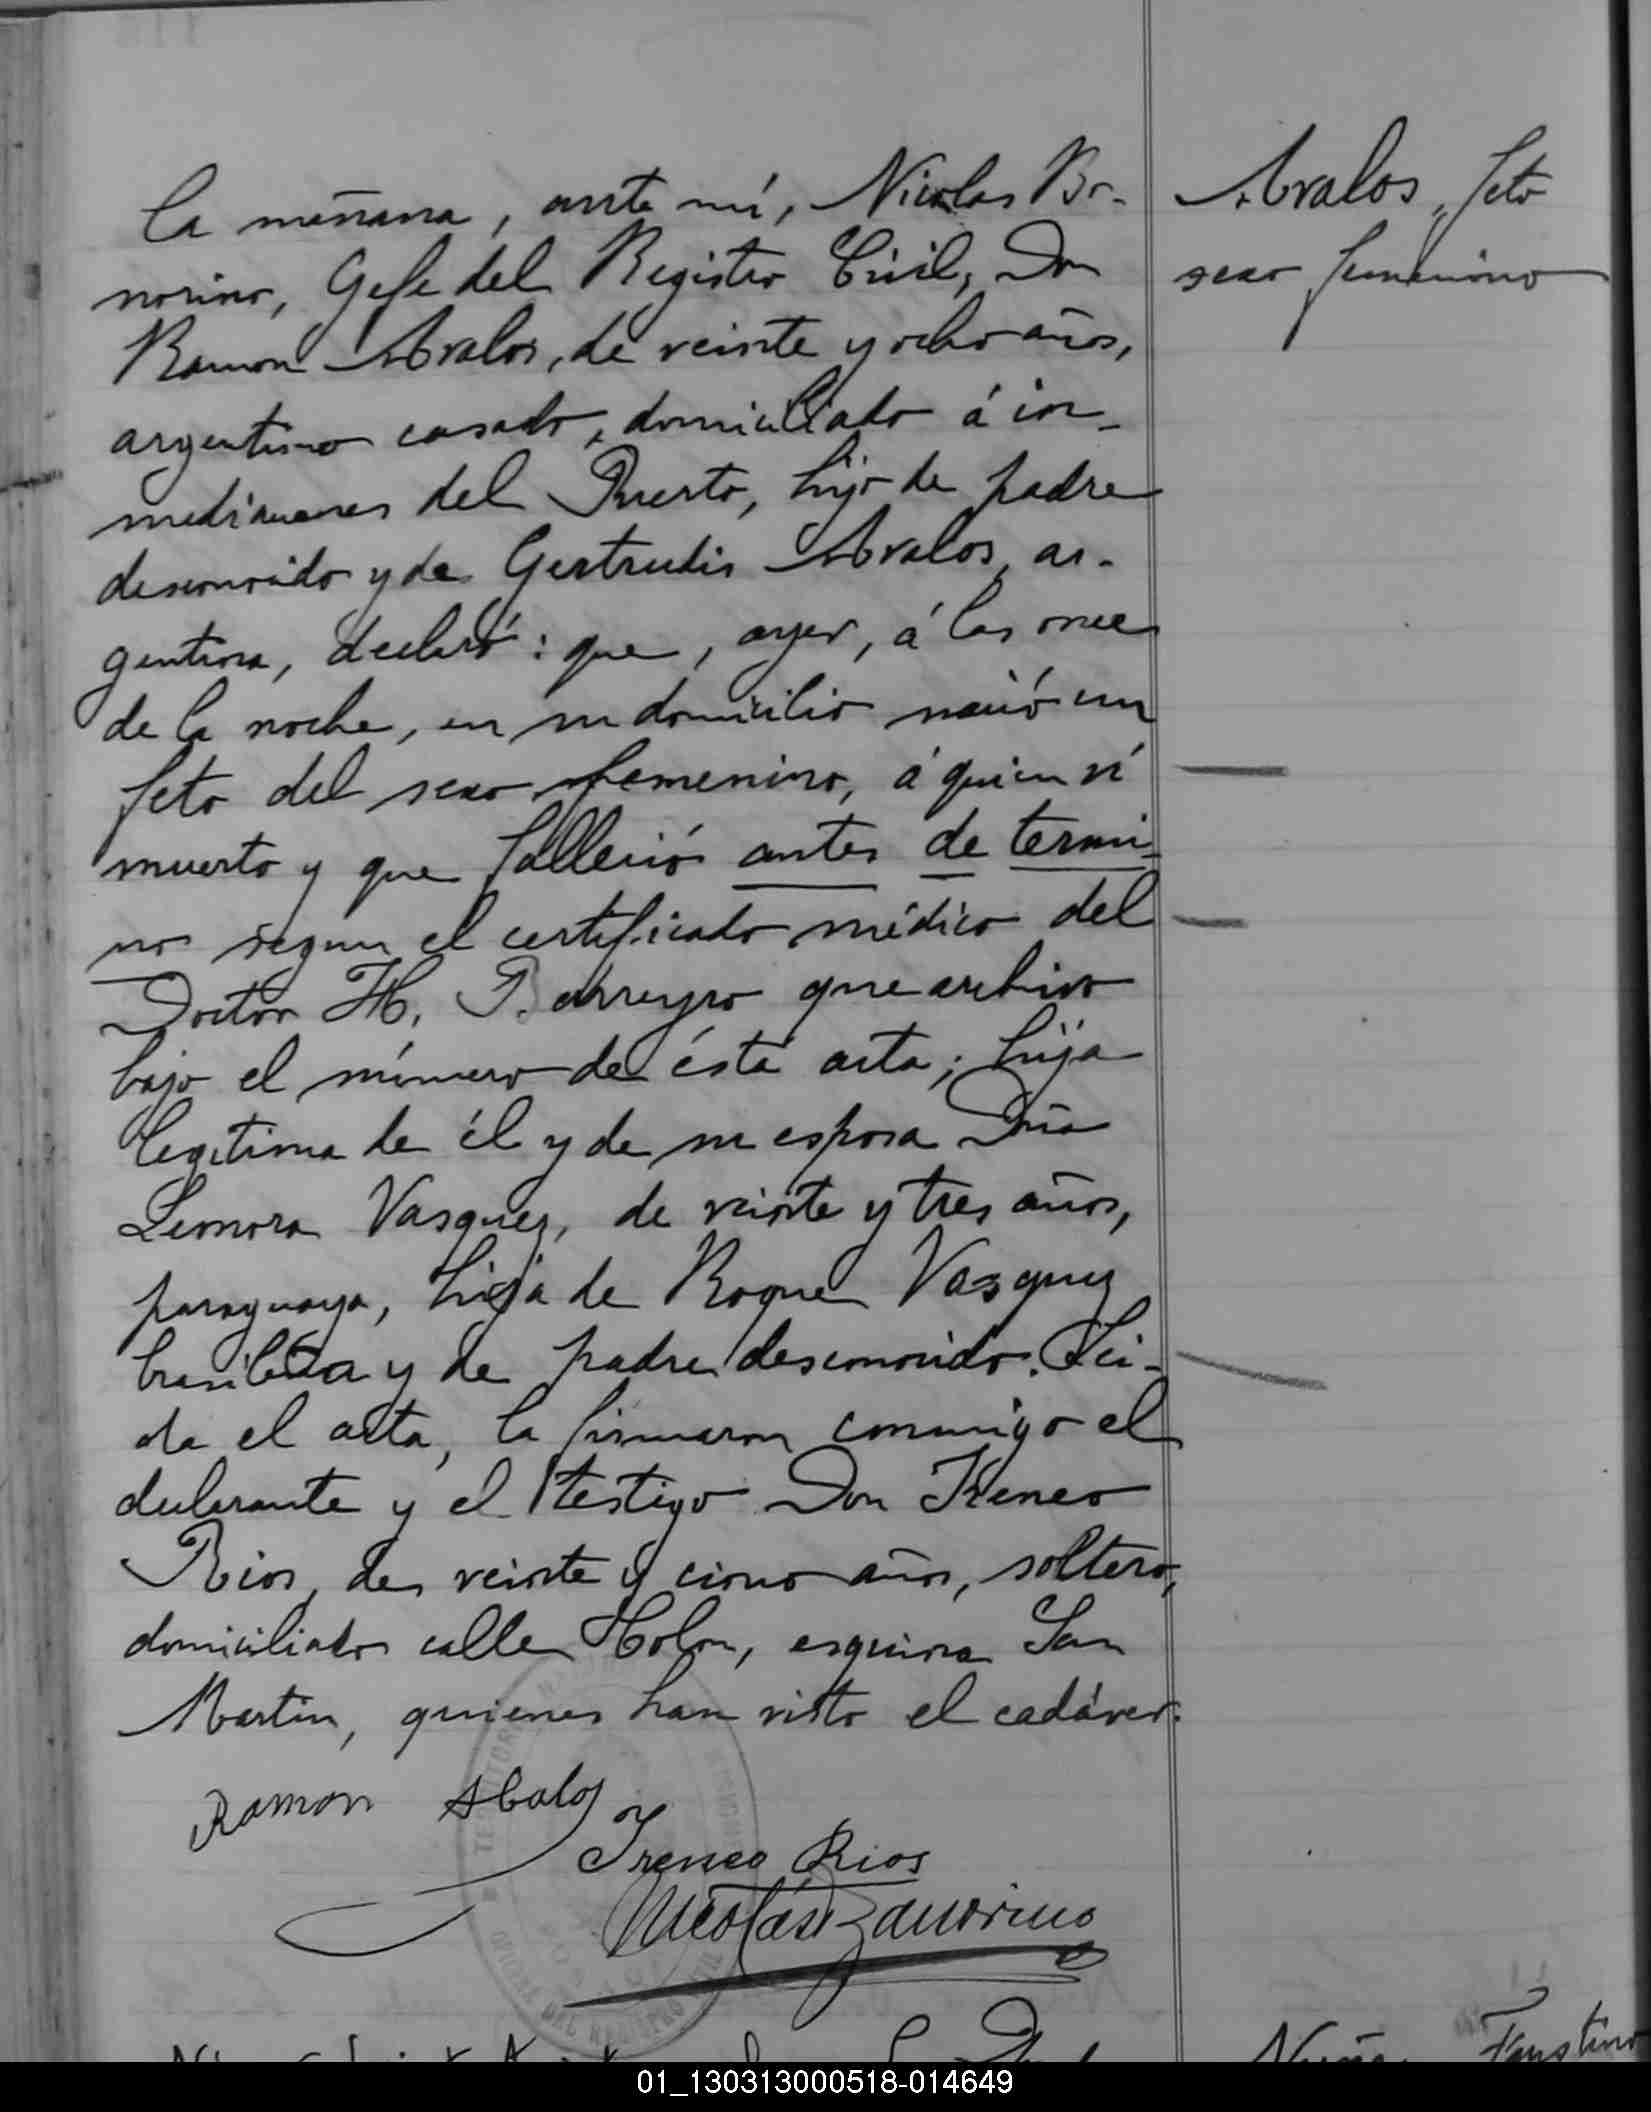 la mañana, ante mí, Nicolas Bo-
norino, Gefe del Registro Civil, Don
Ramon Avalos, de veinte y ocho años,
argentino casado, domiciliado á in-
mediaciones del Puerto, hijo de padre
desconocido y de Gertrudis Avalos, ar-
gentina, declaró: que, ayer, á las once
de la noche, en su domicilio nació un
feto del sexo femenino, á quien ví
muerto y que falleció antes de termi-
no segun el certificado médico del
Doctor H. Barreyro que archivo
bajo el número de ésta acta; hija
legitima de él y de su esposa Doña
Leonora Vasquez, de veinte y tres años,
paraguaya, hija de Roque Vasquez
brasilera y de padre desconocido. Lei-
da el acta, la firmaron conmigo el
declarante y el testigo Don Ireneo
Rios, de veinte y cinco años, soltero,
domiciliado calle Colon, esquina San
Martin, quienes han visto el cadáver.
Avalos, feto
sexo femenino
Ramon Abalos
Ireneo Rios
Nicolás Bonorino
Faustino
01_130313000518-014649